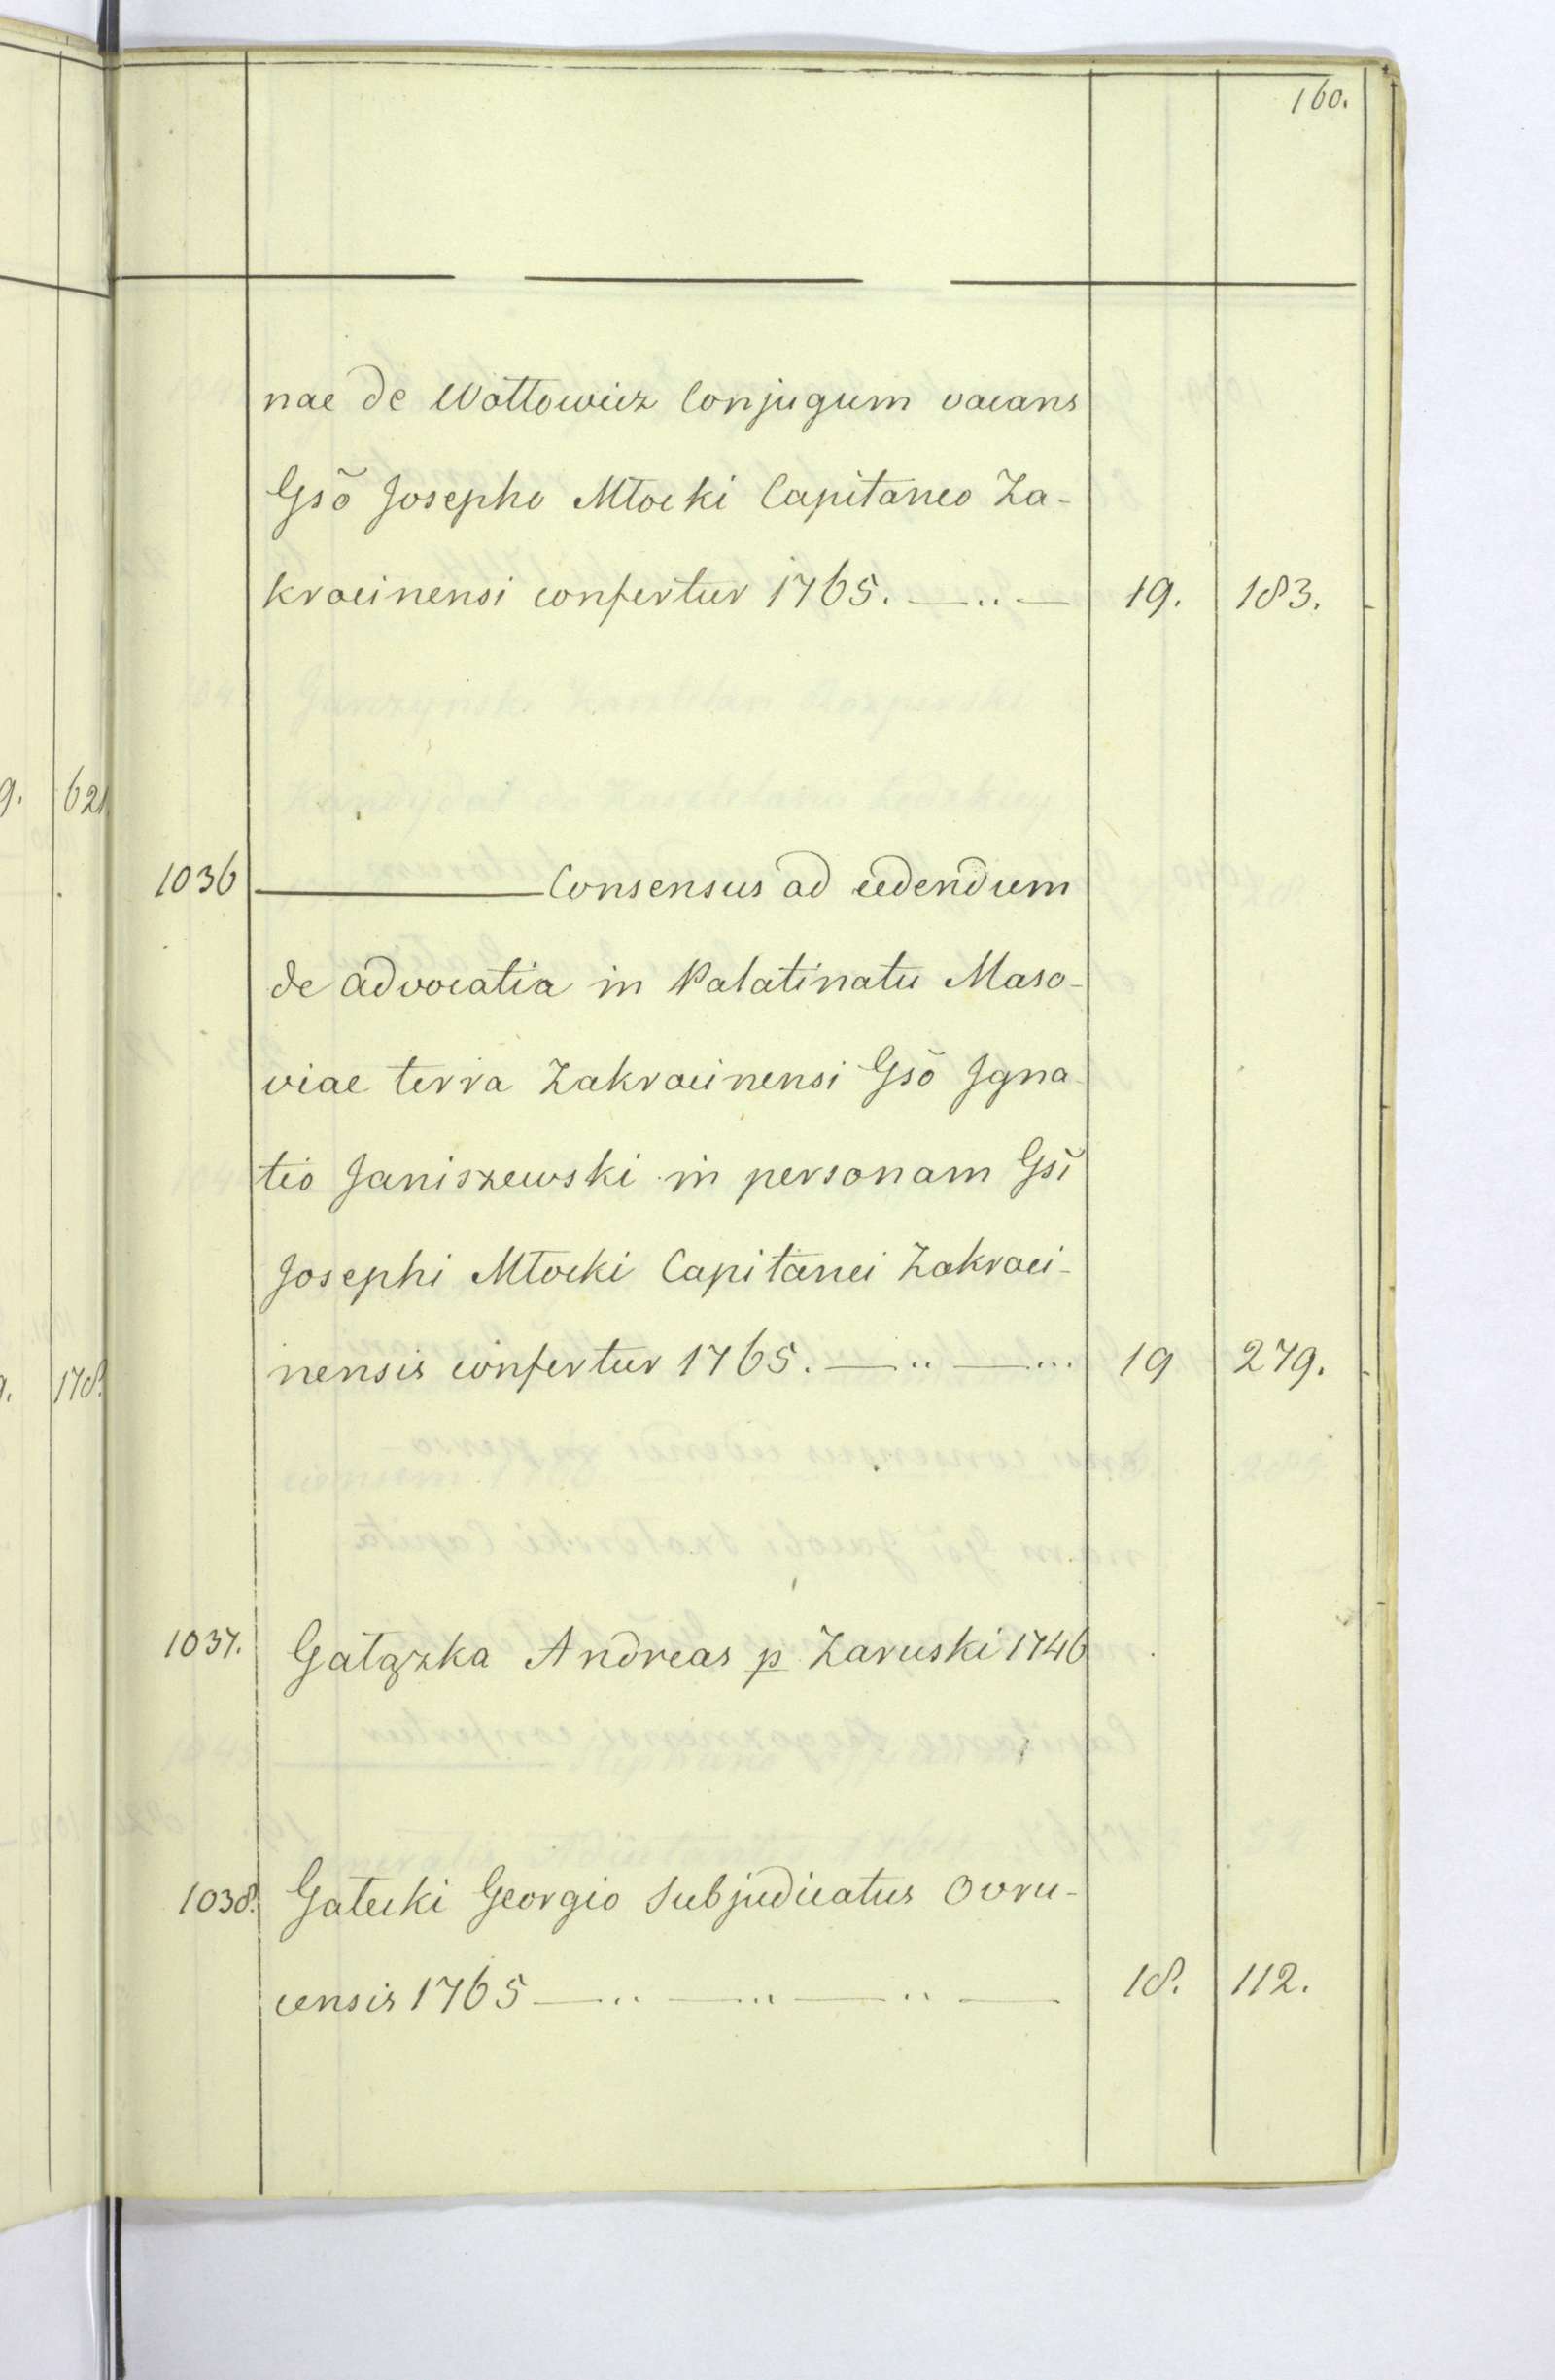 160.
nae de Wołłowicz Conjugum vacans
Gsõ Josepho Młocki Capitaneo Za-
krocinensi confertur 1765. 19. 183.
9. 621
1036 Consensus ad cedendum
de advocatia in Palatinatu Maso-
viae terra Zakrocinensi Gsõ Jgna-
tio Janiszewski in personam Gsi
Josephi Młocki Capitanei Zakroci-
nensis confertur 1765. 19 279.
178.
1037. Gałązka Andreas p Zaruski 1746
1038. Gałecki Georgio Subjudicatus Ovru-
censis 1765 18. 112.